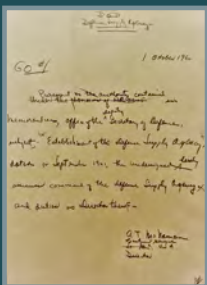 DSA
Defense Supply Agency
1 October 196
GO #1
Pursuant to the authority contained
under the provisions of in
deputy
memorandum, office of the Secretary of Defense,
subject: "Establishment of the Defense Supply Agency"
dated September 1961, the undersigned hereby
assumes command of the Defense Supply Agency
and duties as Director thereof.
A T McNamara
Director